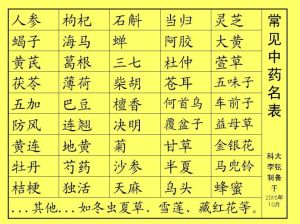 人参 枸杞 石斛 当归 灵芝
蝎子 海马 蝉 阿胶 大黄
黄芪 葛根 三七 杜仲 萱草
茯苓 薄荷 柴胡 苍耳 五味子
五加 巴豆 檀香 何首乌 车前子
防风 连翘 决明 覆盆子 益母草
黄连 地黄 菊 甘草 金银花
牡丹 芍药 沙参 半夏 马兜铃
桔梗 独活 天麻 乌头 蜂蜜
…其他…如冬虫夏草、雪莲、藏红花等。
常见中药名表
科大李弦制备于2015年10月